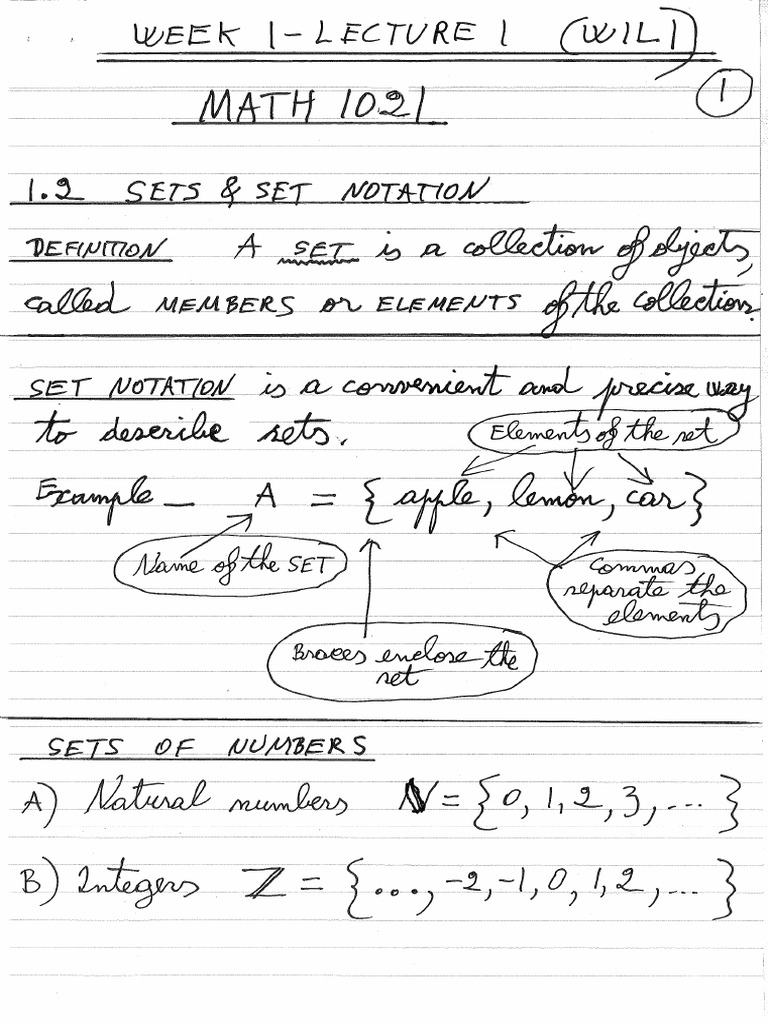 WEEK 1 - LECTURE 1 (W1L1)
1
MATH 1021
1.2 SETS & SET NOTATION
DEFINITION A SET is a collection of objects,
called MEMBERS or ELEMENTS of the collection.
SET NOTATION is a convenient and precise way
to describe sets.
Elements of the set
Example – A = {apple, lemon, car}
Name of the SET
Commas
separate the
elements
Braces enclose the
set
SETS OF NUMBERS
A) Natural numbers ℕ = {0, 1, 2, 3, ...}
B) Integers ℤ = {..., -2, -1, 0, 1, 2, ...}